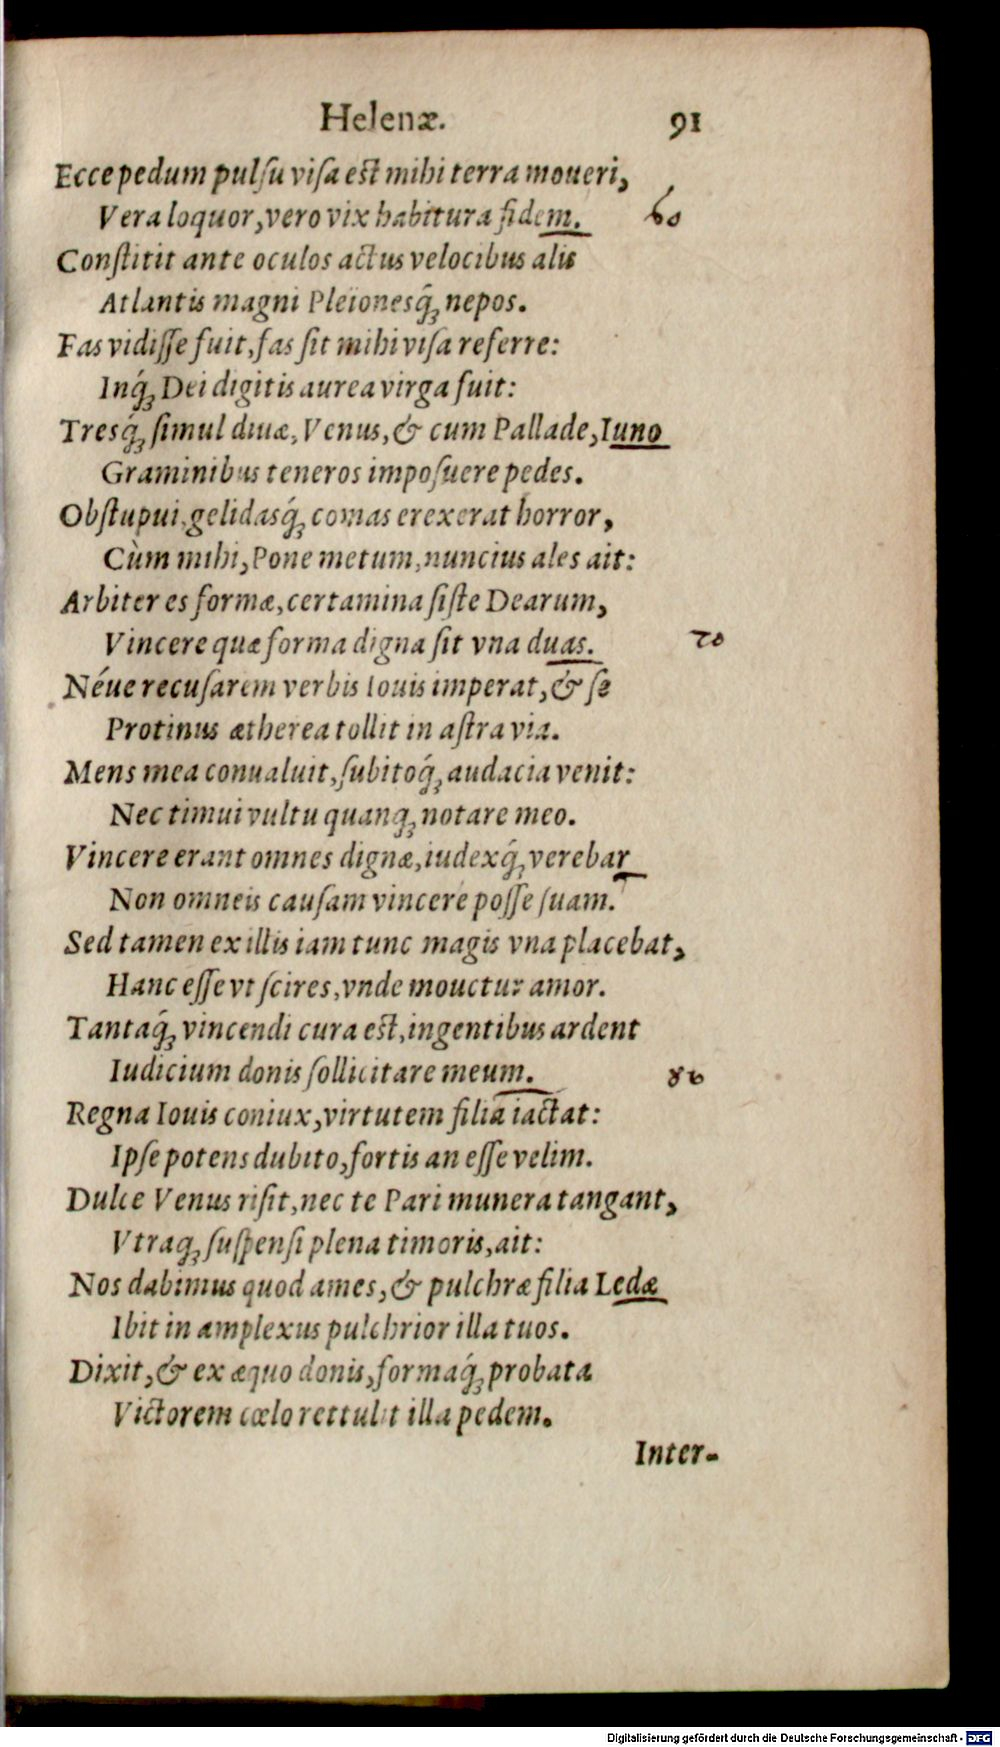 Helenæ. 91
Ecce pedum pulſu viſa est mihi terra moueri,
Vera loquor, vero vix habitura fidem. 60
Conſtitit ante oculos actus velocibus alis
Atlantis magni Pleionesq́; nepos.
Fas vidiſſe fuit, fas ſit mihi viſa referre:
Inq́; Dei digitis aurea virga fuit:
Tresq́; ſimul diuæ, Venus, & cum Pallade, Iuno
Graminibus teneros impoſuere pedes.
Obſtupui, gelidasq́; comas erexerat horror,
Cùm mihi, Pone metum, nuncius ales ait:
Arbiter es formæ, certamina ſiſte Dearum,
Vincere quæ forma digna ſit vna duas. 70
Néue recuſarem verbis Iouis imperat, & ſe
Protinus ætherea tollit in aſtra via.
Mens mea conualuit, ſubitoq́; audacia venit:
Nec timui vultu quanq; notare meo.
Vincere erant omnes dignæ, iudexq́; verebar
Non omneis cauſam vincere poſſe ſuam.
Sed tamen ex illis iam tunc magis vna placebat,
Hanc eſſe vt ſcires, vnde mouetur amor.
Tantaq́; vincendi cura est, ingentibus ardent
Iudicium donis ſollicitare meum. 80
Regna Iouis coniux, virtutem filia iactat:
Ipſe potens dubito, fortis an eſſe velim.
Dulce Venus riſit, nec te Pari munera tangant,
Vtraq; ſuſpenſi plena timoris, ait:
Nos dabimus quod ames, & pulchræ filia Ledæ
Ibit in amplexus pulchrior illa tuos.
Dixit, & ex æquo donis, formaq́; probata
Victorem cœlo rettulit illa pedem.
Inter-
Digitalisierung gefördert durch die Deutsche Forschungsgemeinschaft - DFG